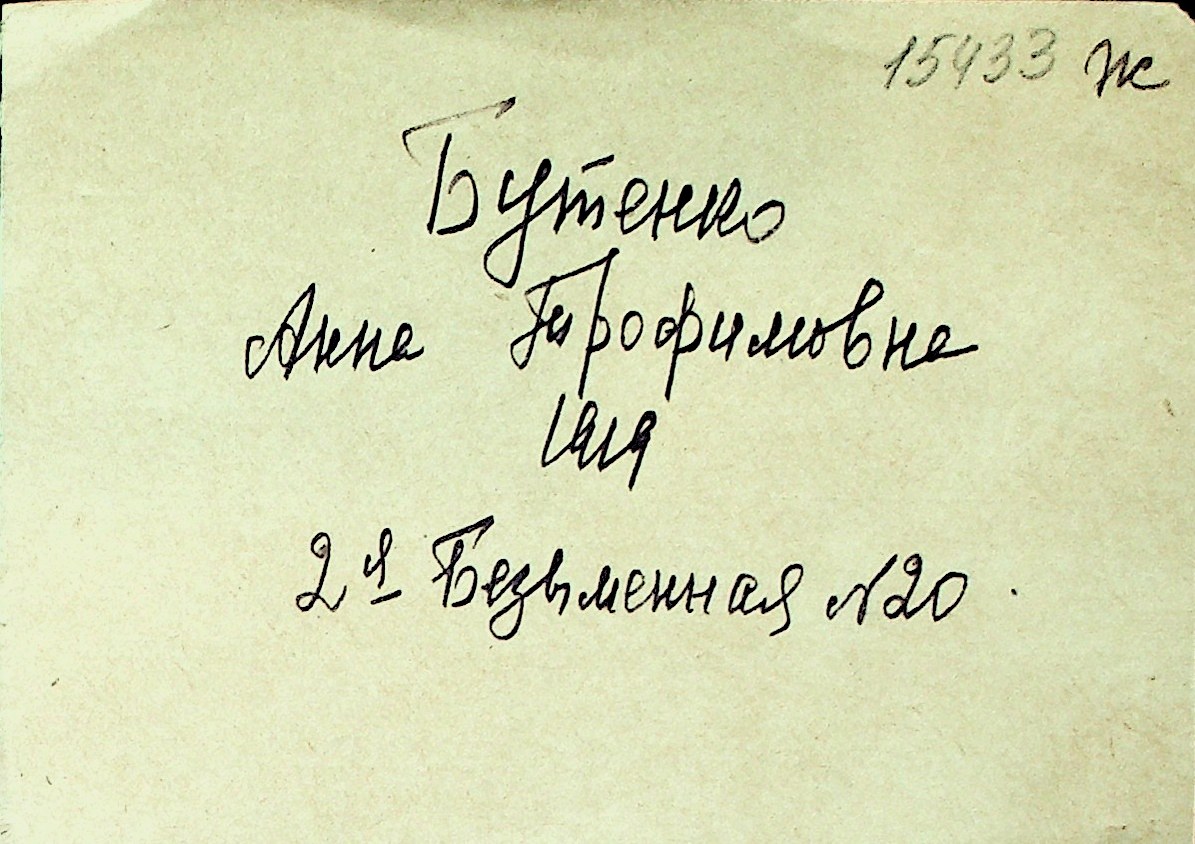 15433 Ж
Бутенко
Анна Трофимовна
1919
2я Безыменная №20.